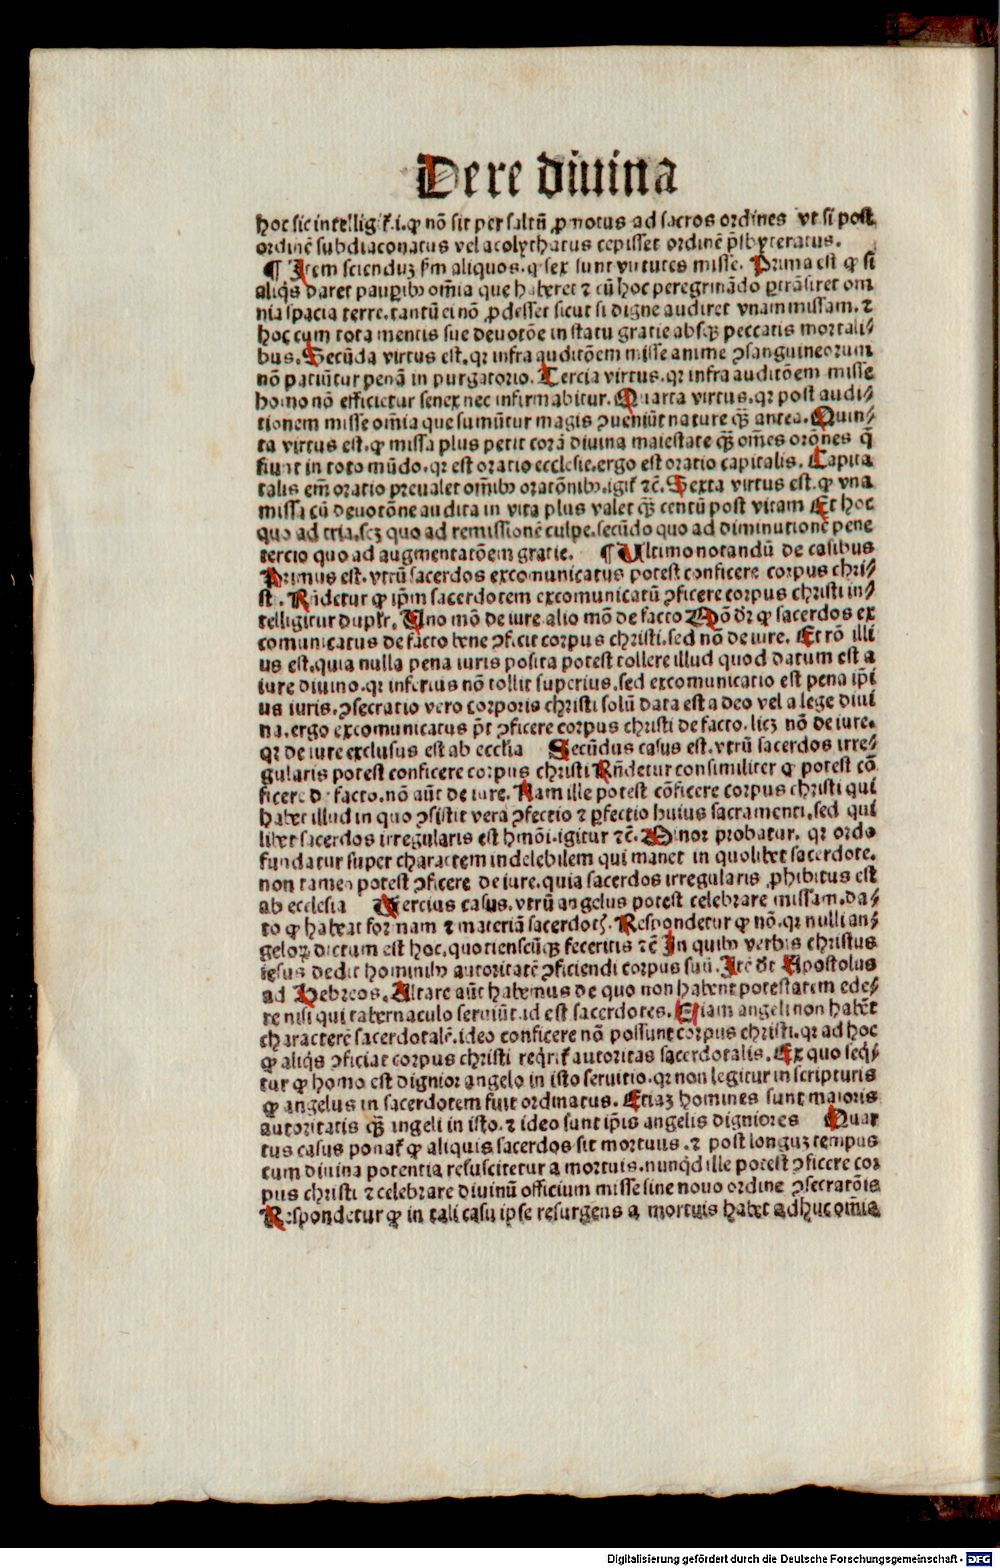 De re diuina
hoc sic intelligit̄ .i. ꝙ nō sit per saltū ꝓmotus ad sacros ordines vt si post
ordinē subdiaconatus vel acolythatus cepisset ordinē p̄sbyteratus.
¶ Item scienduꝫ s̄m aliquos. ꝙ sex sunt virtutes misse. Prima est ꝙ si
aliq̄s daret pauꝑibꝰ om̄ia que haberet ⁊ cū hoc peregrinādo ꝑtrāsiret om
nia spacia terre. tantū ei nō ꝓdesset sicut si digne audiret vnam missam. ⁊
hoc cum tota mentis sue deuotōe in statu gratie absqꝫ peccatis mortali⸗
bus. Secūda virtus est. qꝛ infra auditōem misse anime ꝯsanguineorum
nō patiūtur penā in purgatorio. Tercia virtus. qꝛ infra auditōem misse
homo nō efficietur senex nec infirmabitur. Quarta virtus. qꝛ post audi⸗
tionem misse om̄ia que sumūtur magis ꝯueniūt nature qꝫ̄ antea. Quin⸗
ta virtus est. ꝙ missa plus petit corā diuina maiestate qꝫ̄ om̄es orōnes q̄
fiunt in toto mūdo. qꝛ est oratio ecclesie. ergo est oratio capitalis. Capita
talis em̄ oratio preualet om̄ibꝰ oratōnibꝰ. igit̄ ⁊c̄. Sexta virtus est. ꝙ vna
missa cū deuotōne audita in vita plus valet qꝫ̄ centū post vitam Et hoc
quo ad tria. scꝫ quo ad remissionē culpe. secūdo quo ad diminutionē pene
tercio quo ad augmentatōem gratie. ¶ Ultimo notandū de casibus
Primus est. vtrū sacerdos excomunicatus potest conficere corpus chri⸗
sti. Rn̄detur ꝙ ip̄m sacerdotem excomunicatū ꝯficere corpus christi in⸗
telligitur duplr̄. Uno mō de iure alio mō de facto Mō dr̄ ꝙ sacerdos ex
comunicatus de facto bene ꝯficit corpus christi. sed nō de iure. Et rō illi
us est. quia nulla pena iuris posita potest tollere illud quod datum est a
iure diuino. qꝛ inferius nō tollit superius. sed excomunicatio est pena ip̄i
us iuris. ꝯsecratio vero corporis christi solū data est a deo vel a lege diui
na. ergo excomunicatus pōt ꝯficere corpus christi de facto. licꝫ nō de iure.
qꝛ de iure exclusus est ab eccl̄ia Secūdus casus est. vtrū sacerdos irre⸗
gularis potest conficere corpus christi Rn̄detur consimiliter ꝙ potest cō
ficere de facto. nō aūt de iure. Nam ille potest cōficere corpus christi qui
habet illud in quo ꝯsistit vera ꝯfectio ⁊ ꝑfectio huius sacramenti. sed qui
libet sacerdos irregularis est hmōi. igitur ⁊c̄. Minor probatur. qꝛ ordo
fundatur super charactem indelebilem qui manet in quolibet sacerdote.
non tamen potest ꝯficere de iure. quia sacerdos irregularis ꝓhibitus est
ab ecclesia Tercius casus. vtrū angelus potest celebrare missam. da⸗
to ꝙ habeat formam ⁊ materiā sacerdotꝭ. Respondetur ꝙ nō. qꝛ nulli an⸗
geloꝝ dictum est hoc. quotienscūqꝫ feceritis ⁊c̄ In quibꝰ verbis christus
iesus dedit hominibꝰ autoritatē ꝯficiendi corpus suū. Itē dt̄ Apostolus
ad Hebreos. Altare aūt habemus de quo non habent potestatem ede⸗
re nisi qui tabernaculo seruiūt. id est sacerdotes. Etiam angeli non habēt
characterē sacerdotalē. ideo conficere nō possunt corpus christi. qꝛ ad hoc
ꝙ aliq̄s ꝯficiat corpus christi req̄rit̄ autoritas sacerdotalis. Ex quo seq̄⸗
tur ꝙ homo est dignior angelo in isto seruitio. qꝛ non legitur in scripturis
ꝙ angelus in sacerdotem fuit ordinatus. Etiaꝫ homines sunt maioris
autoritatis qꝫ̄ angeli in isto. ⁊ ideo sunt ip̄is angelis digniores Quar
tus casus ponat̄ ꝙ aliquis sacerdos sit mortuus. ⁊ post longuꝫ tempus
cum diuina potentia resuscitetur a mortuis. nunqd̄ ille potest ꝯficere cor
pus christi ⁊ celebrare diuinū officium misse sine nouo ordine ꝯsecratōis
Respondetur ꝙ in tali casu ipse resurgens a mortuis habet adhuc om̄ia
Digitalisierung gefördert durch die Deutsche Forschungsgemeinschaft - DFG